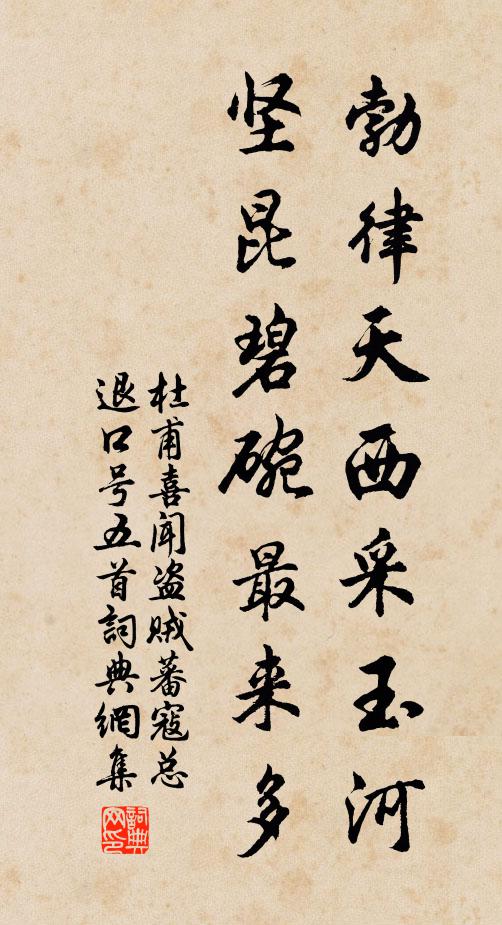 勃律天西采玉河
坚昆碧碗最来多
杜甫喜闻盗贼蕃寇总
退口号五首詞典網集
詞典
网印